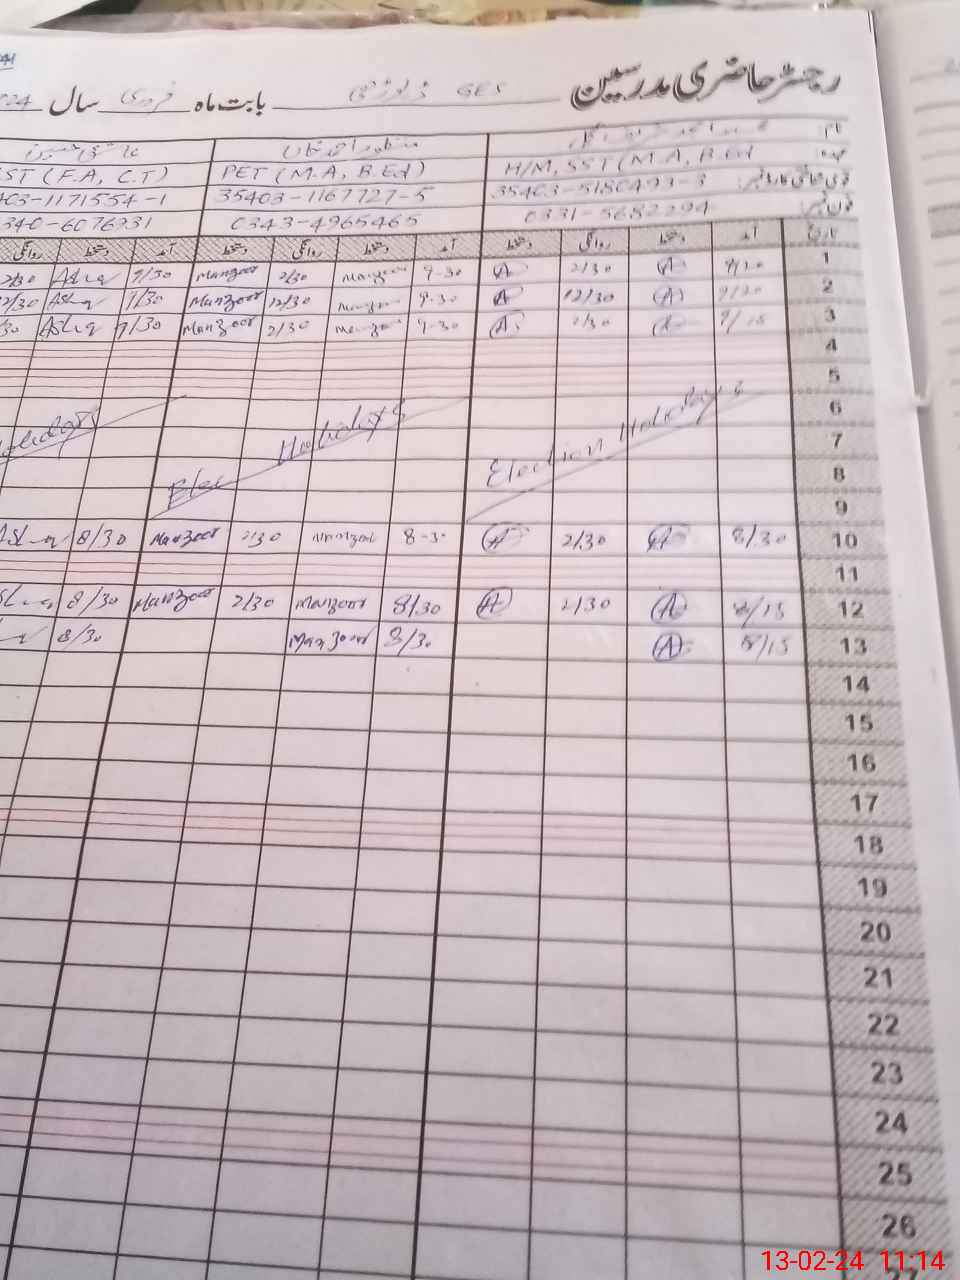 رجسٹر حاضری مدرسین GES بابت ماہ فروری سال
نام
عہدہ H/M, SST (M.A, B.Ed PET (M.A, B.Ed) ST (F.A, C.T)
قومی شناختی کارڈ نمبر: 35403-5180493-3 35403-1167727-5 403-1171554-1
فون نمبر: 0331-5682294 0343-4965465 340-6076931
تاریخ آمد دستخط روانگی دستخط آمد دستخط روانگی دستخط آمد دستخط روانگی
1 9/30 A 2/30 A 9-30 Manzoor 2/30 Manzoor 9/30 Ashq 2/30
2 9/30 A 12/30 A 9-30 Manzoor 12/30 Manzoor 9/30 Ashq 12/30
3 9/15 A 2/30 A 9-30 Manzoor 2/30 Manzoor 9/30 Ashq /30
4
5
6 Election Holidays Holidays Holidays
7
8 Elec
9
10 8/30 A 2/30 A 8-30 Manzoor 2/30 Manzoor 8/30
11
12 8/15 A 2/30 A 8/30 Manzoor 2/30 Manzoor 8/30
13 8/15 A 8/30 Manzoor 8/30
14
15
16
17
18
19
20
21
22
23
24
25
26
27
13-02-24 11:14